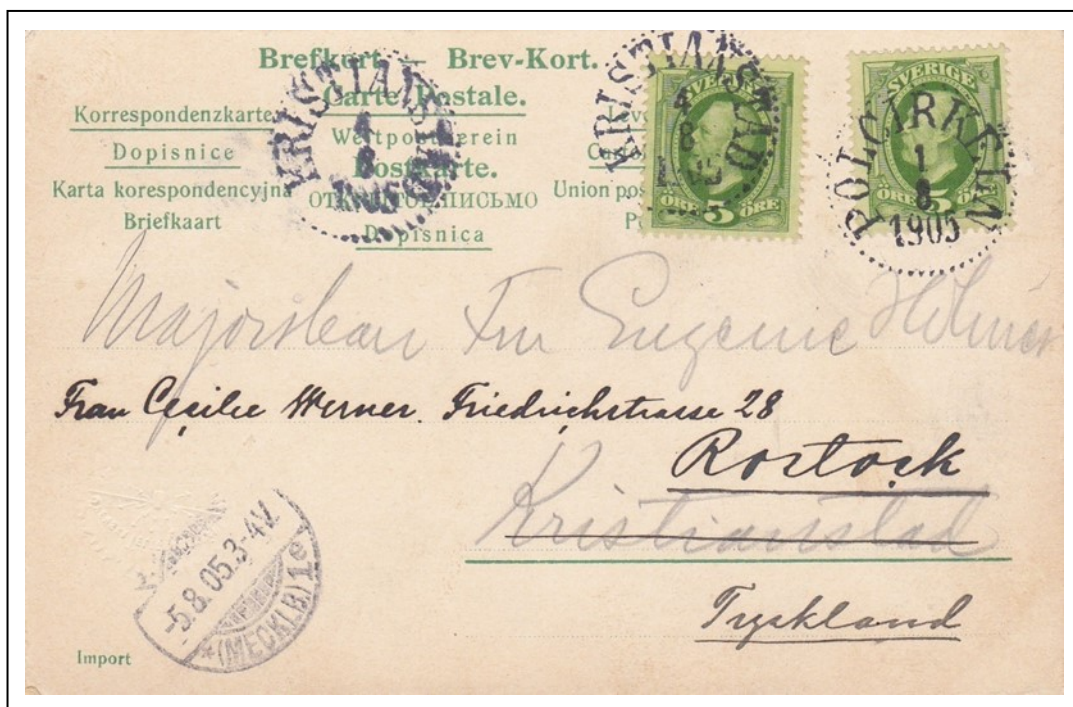 Brefkort — Brev-Kort.
Carte Postale.
Korrespondenzkarte
Weltpostverein
Dopisnice
Postkarte.
Karta korespondencyjna
ОТКРЫТОЕ ПИСЬМО
Union pos
Briefkaart
Dopisnica
KRISTIANSTAD
4
8
1905
KRISTIANSTAD
4
8
SVERIGE
5
ÖRE ÖRE
SVERIGE
5
ÖRE ÖRE
POLCIRKELN
1
8
1905
Majorskan Fru Eugenie
Frau Cecilie Werner. Friedrichstrasse 28
Rostock
Kristianstad
Tyskland
-5.8.05.3-4V.
*(MECKLB.)1e
Import